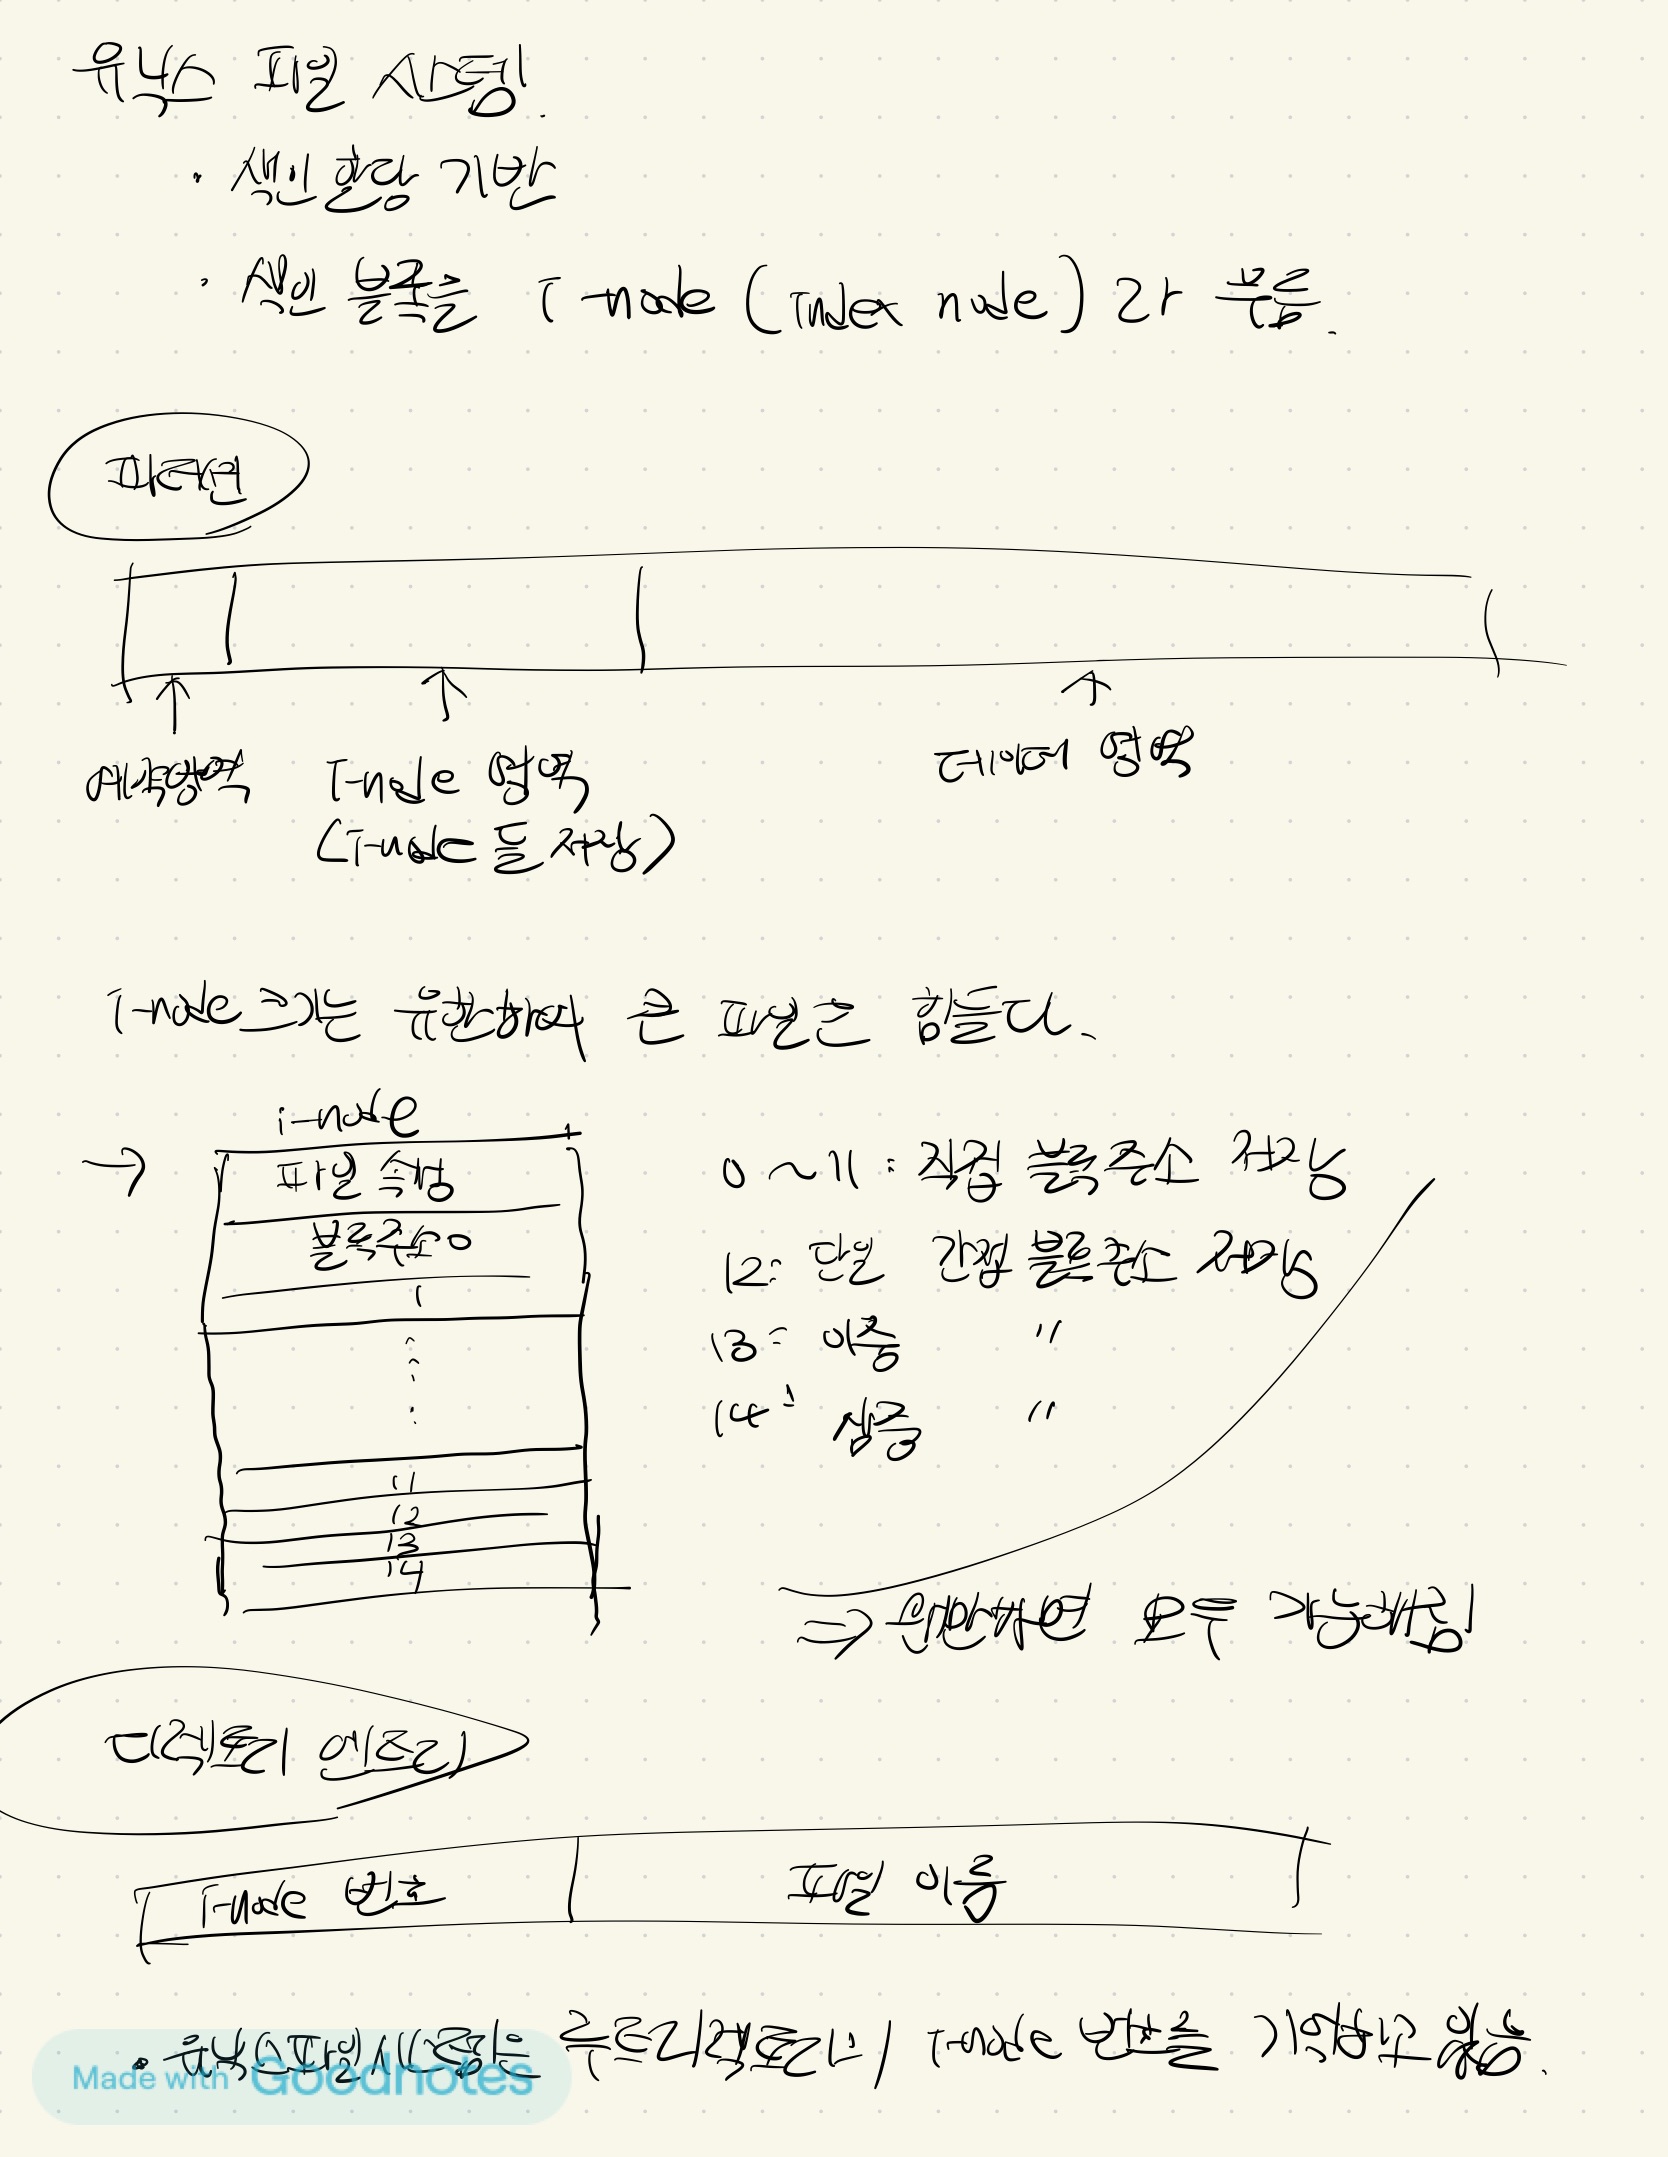 유닉스 파일 시스템.
· 색인 할당 기반
· 색인 블록을 I-node (Index node) 라 부름.
파티션
예약영역
I-node 영역
(I-node 들 저장)
데이터 영역
I-node 크기는 유한하여 큰 파일은 힘들다.
→
i-node
파일 속성
블록주소 0
1
11
12
13
14
0 ~ 11 : 직접 블록 주소 저장
12: 단일 간접 블록주소 저장
13: 이중 "
14: 삼중 "
⇒ 웬만하면 모두 가능해짐
디렉토리 엔트리
I-node 번호
파일 이름
• 유닉스 파일 시스템은 루트 디렉토리의 I-node 번호를 기억하고 있음.
Made with Goodnotes